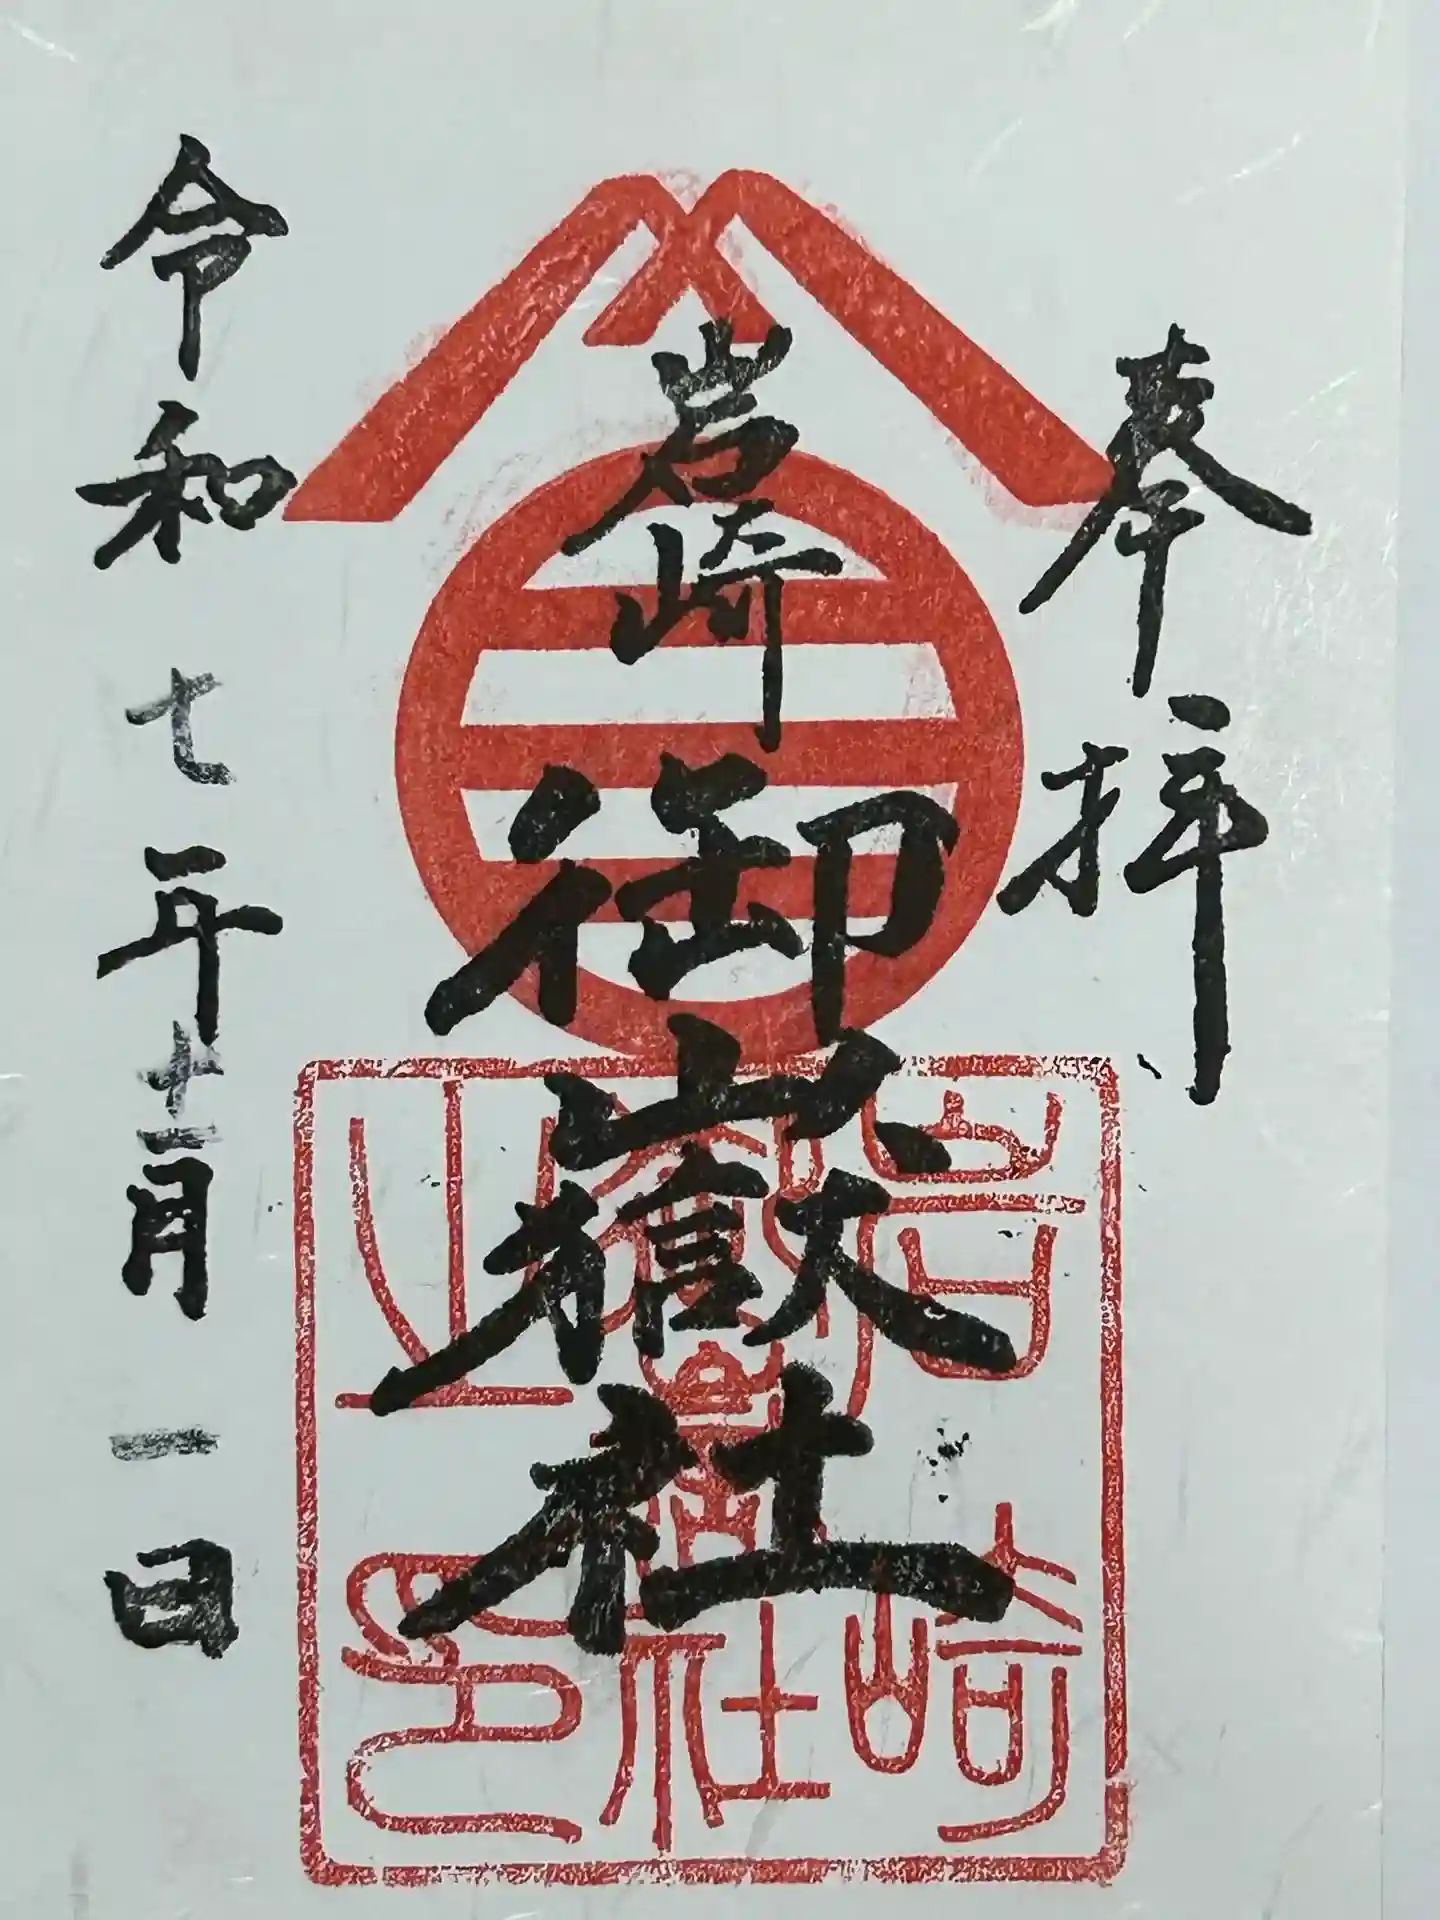 奉拝
岩崎
御嶽社
令和七年十一月一日
岩崎
御嶽社
之印